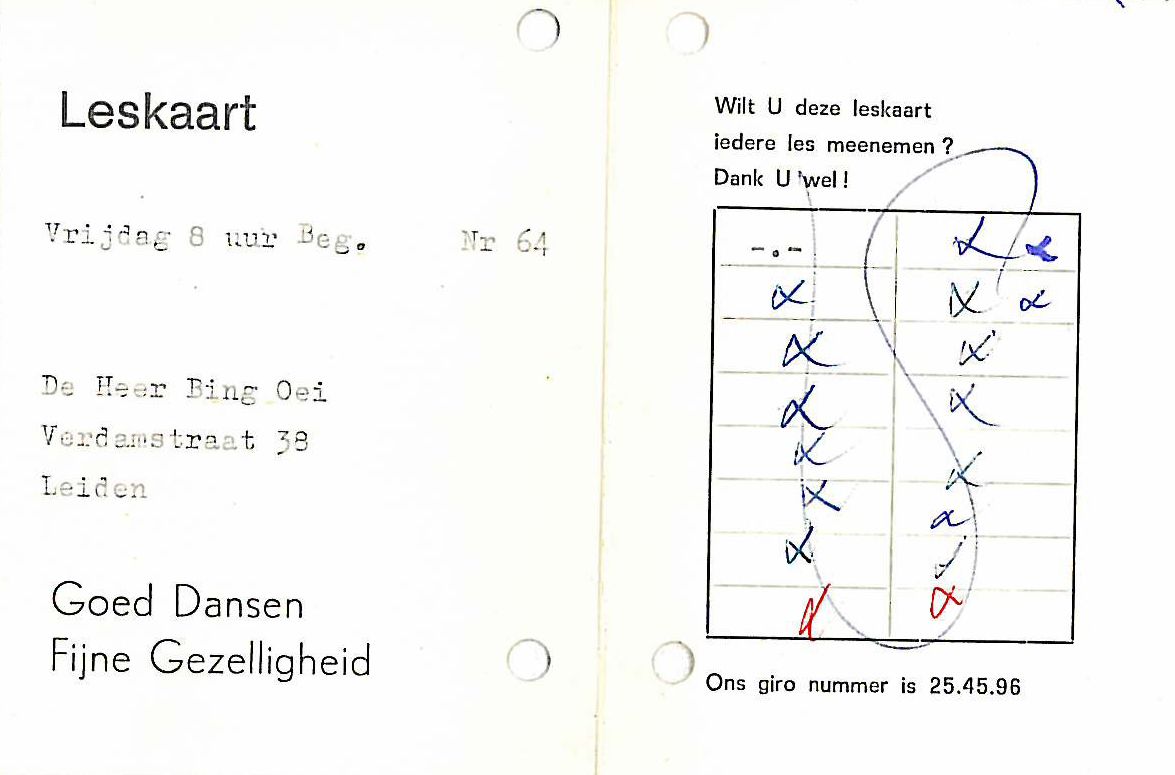 Leskaart
Vrijdag 8 uur Beg. Nr 64
De Heer Bing Oei
Verdamstraat 38
Leiden
Goed Dansen
Fijne Gezelligheid
Wilt U deze leskaart
iedere les meenemen ?
Dank U wel !
-.-
Ons giro nummer is 25.45.96